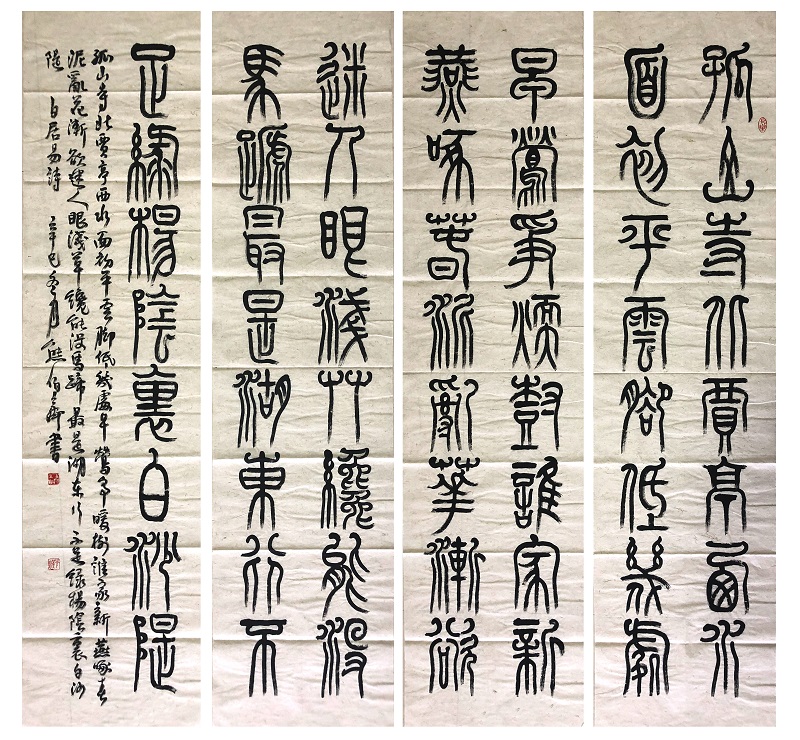 孤山寺北賈亭西水
面初平雲腳低幾處
早鶯爭煖樹誰家新
燕啄春泥亂華漸欲
迷人眼淺艸纔能沒
馬蹏最是湖東行不
足綠楊陰裏白沙隄
孤山寺北賈亭西水面初平雲腳低幾處早鶯爭暖樹誰家新燕啄春
泥亂花漸欲迷人眼淺草纔能沒馬蹄最是湖东行不足綠楊陰裏白沙
隄 白居易詩 辛巳冬月熊伯齊書